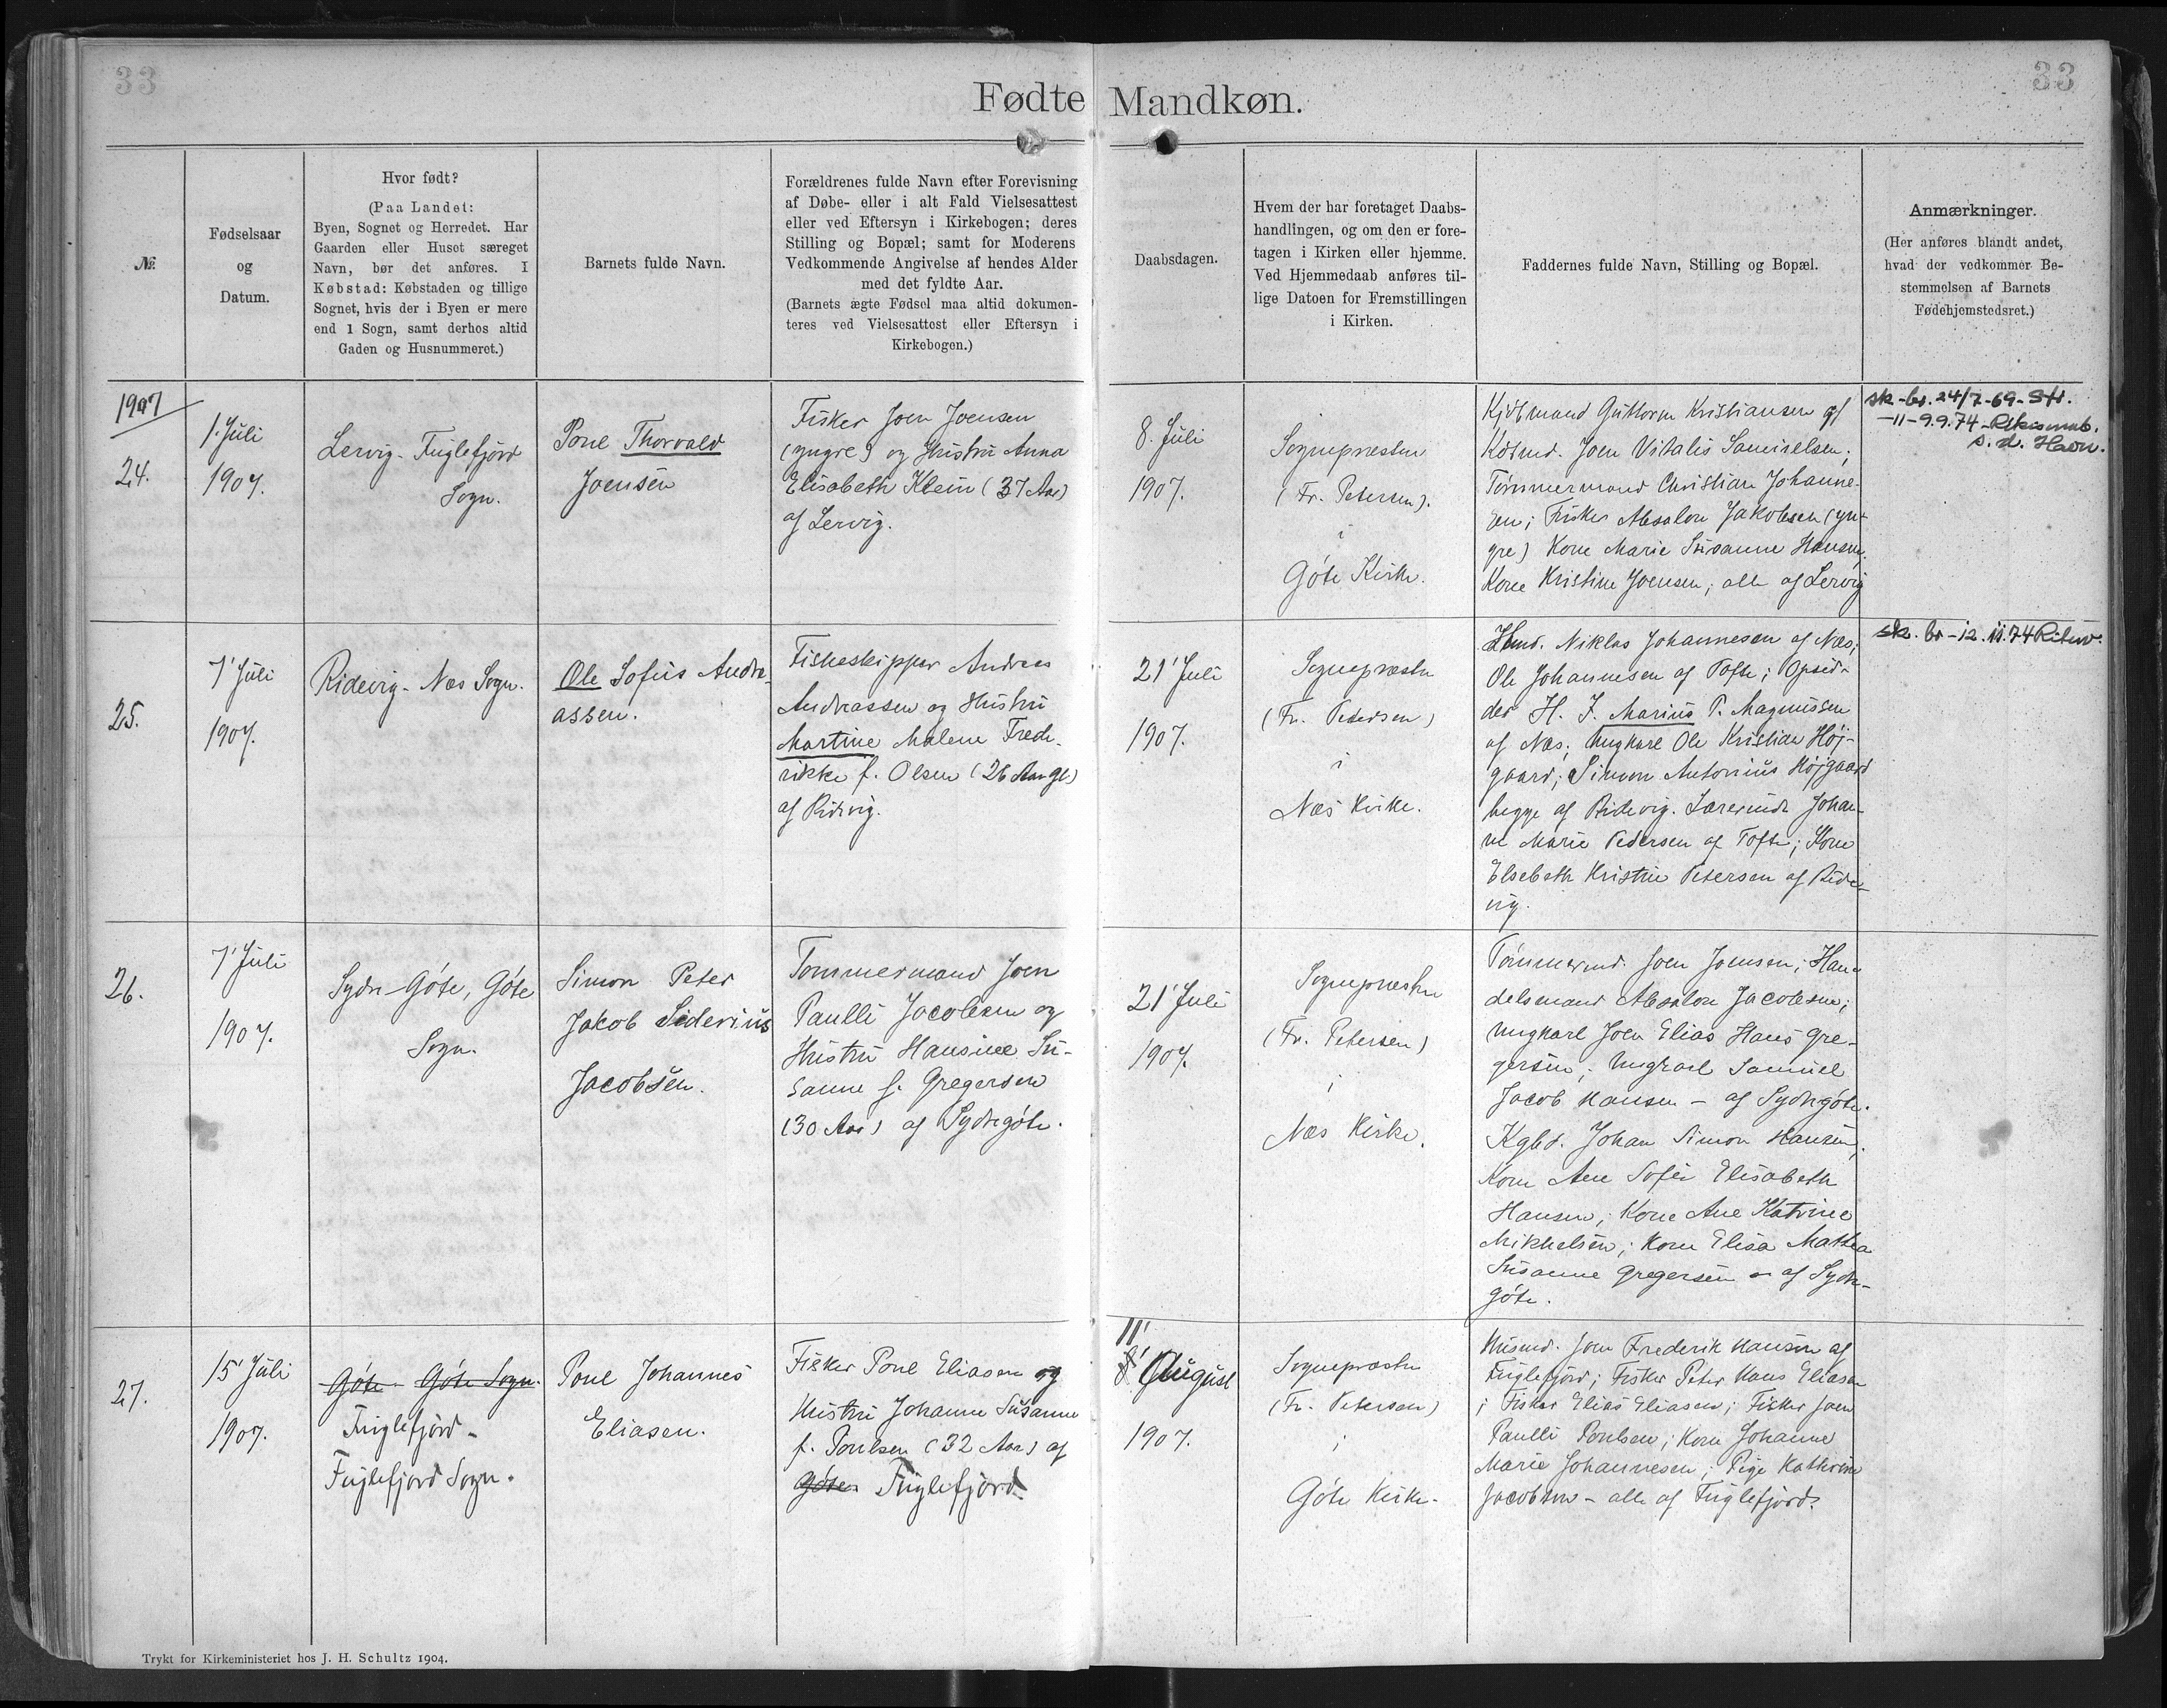 33
33
Fødte Mandkøn.
№
Fødselsaar
og
Datum.
Hvor født?
(Paa Landet:
Byen, Sognet og Herredet. Har
Gaarden eller Huset særeget
Navn, bør det anføres. I
Købstad: Købstaden og tillige
Sognet, hvis der i Byen er mere
end 1 Sogn, samt derhos altid
Gaden og Husnummeret.)
Barnets fulde Navn.
Forældrenes fulde Navn efter Forevisning
af Døbe- eller i alt Fald Vielsesattest
eller ved Eftersyn i Kirkebogen; deres
Stilling og Bopæl; samt for Moderens
Vedkommende Angivelse af hendes Alder
med det fyldte Aar.
(Barnets ægte Fødsel maa altid dokumen-
teres ved Vielsesattest eller Eftersyn i
Kirkebogen.)
Daabsdagen.
Hvem der har foretaget Daabs-
handlingen, og om den er fore-
tagen i Kirken eller hjemme.
Ved Hjemmedaab anføres til-
lige Datoen for Fremstillingen
i Kirken.
Faddernes fulde Navn, Stilling og Bopæl.
Anmærkninger.
(Her anføres blandt andet,
hvad der vedkommer Be-
stemmelsen af Barnets
Fødehjemstedsret.)
1907
24.
1. Juli
1907.
Lervig - Fuglefjord
Sogn.
Poul Thorvald
Joensen
Fisker Joen Joensen
(yngre) og Hustru Anna
Elisabeth Klein (37 Aar)
af Lervig.
8. Juli
1907.
Sognepræsten
(Fr. Petersen).
i
Göte Kirke.
Kjöbmand Guttorm Kristiansen
Köbmd. Joen Vitalis Samuelsen;
Tömmermand Christian Johanne-
sen; Fisker Absalon Jakobsen (yn-
gre) Kone Marie Susanne Hansen,
Kone Kristine Joensen; alle af Lervig
sk-br. 24/7-69-Str.
-11-9.9.74-Riksumb.
s. d. Havn.
25.
7' Juli
1907.
Ridevig - Næs Sogn.
Ole Sofus Andre-
assen.
Fiskeskipper Andreas
Andreassen og Hustru
Martine Malene Frede-
rikke f. Olsen (26 Aar gl)
af Ridevig.
21' Juli
1907.
Sognepræsten
(Fr. Petersen)
i
Næs Kirke.
Niklas Johannesen af Næs;
Ole Johannesen af Tofte; Opsid-
der H. J. Marius P. Magnussen
af Næs; Ungkarl Ole Kristian Höj-
gaard; Simon Antonius Höjgaard
begge af Ridevig. Lærerinde Johan-
ne Marie Pedersen af Tofte; Kone
Elsebeth Kristine Petersen af Ride-
vig.
sk. br - 12.11.74
26.
7' Juli
1907.
Sydre-Göte, Göte
Sogn.
Simon Peter
Jakob Siderius
Jacobsen.
Tømmermand Joen
Paulli Jacobsen og
Hustru Hansine Su-
sanne f. Gregersen
(30 Aar) af Sydregöte.
21' Juli
1907.
Sognepræsten
(Fr. Petersen)
i
Næs Kirke.
Tömmermd. Joen Joensen; Han-
delsmand Absalon Jacobsen;
Ungkarl Joen Elias Hans Gre-
gersen; Ungkarl Samuel
Jacob Hansen - af Sydregöte.
Kgbd. Johan Simon Hansen;
Kone Ane Sofie Elisabeth
Hansen; Kone Ane Katrine
Mikkelsen; Kone Elisa Mathea
Susanne Gregersen - af Sydre-
göte.
27.
15' Juli
1907.
Göte - Göte Sogn.
Fuglefjord -
Fuglefjord Sogn.
Poul Johannes
Eliasen.
Fisker Poul Eliasen og
Hustru Johanne Susanne
f. Poulsen (32 Aar) af
Göte. Fuglefjord
11'
8' August
1907.
Sognepræsten
(Fr. Petersen)
i
Göte Kirke.
Husmd. Joen Frederik Hansen af
Fuglefjord; Fisker Peter Hans Eliasen
; Fisker Elias Eliasen; Fisker Joen
Paulli Poulsen; Kone Johanne
Marie Johannesen; Pige Kathrine
Jacobsen - alle af Fuglefjord.
Trykt for Kirkeministeriet hos J. H. Schultz 1904.